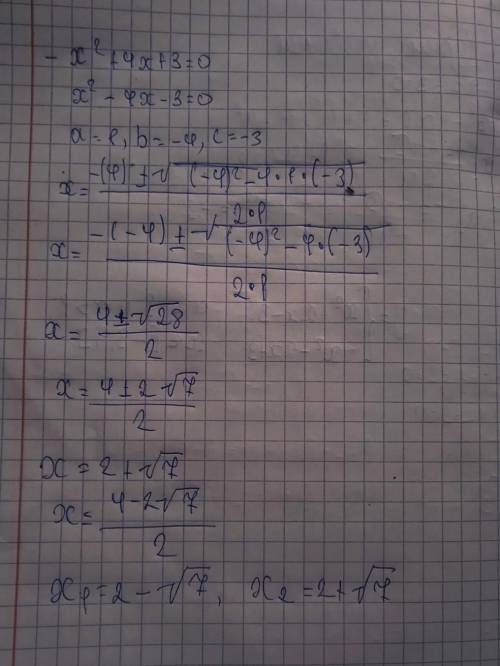 - x² + 4x + 3 = 0
x² - 4x - 3 = 0
a = 1, b = -4, c = -3
x = (-(4) ± √((-4)² - 4 · 1 · (-3))) / (2 · 1)
x = (-(-4) ± √((-4)² - 4 · (-3))) / (2 · 1)
x = (4 ± √28) / 2
x = (4 ± 2√7) / 2
x = 2 + √7
x = (4 - 2√7) / 2
x₁ = 2 - √7, x₂ = 2 + √7